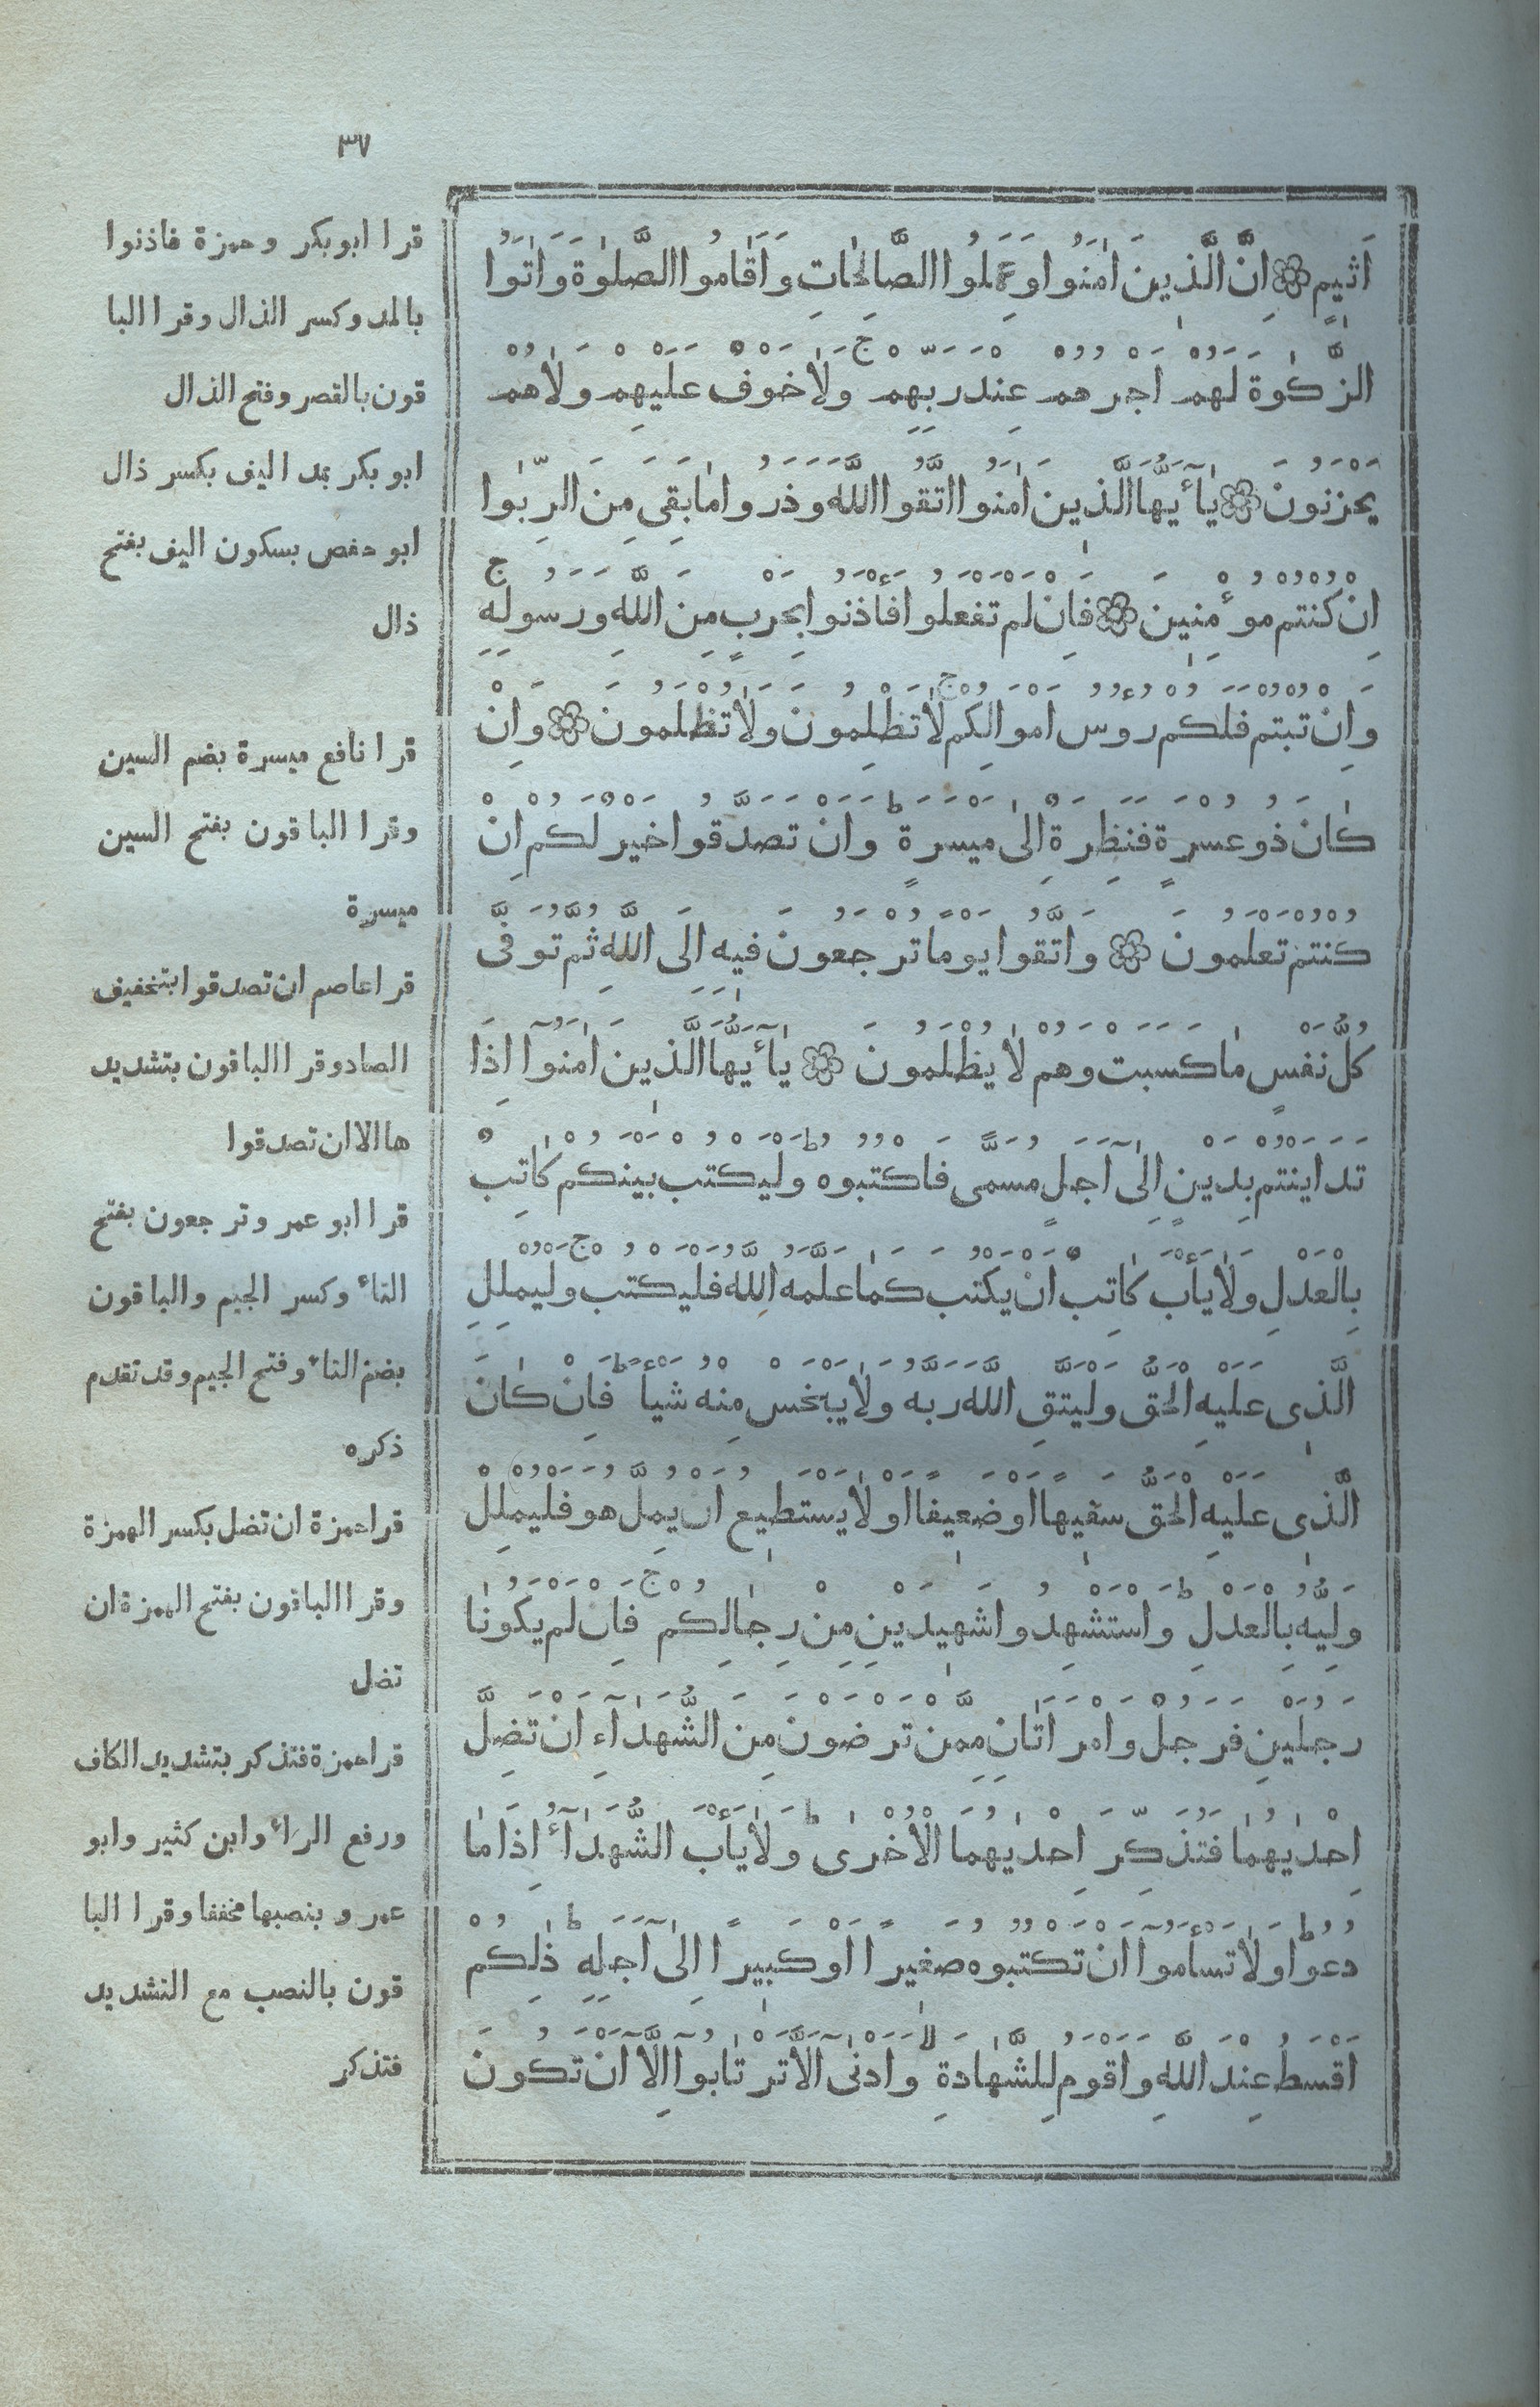 ٣٧
اَثيمٍ ۞ اِنَّ الَّذينَ اٰمَنُوا وَعَمِلُوا الصَّالِحَاتِ وَاَقَامُوا الصَّلٰوةَ وَاٰتَوُا
الزَّكٰوةَ لَهُمْ اَجْرُهُمْ عِنْدَ رَبِّهِمْ ج وَلٰا خَوْفٌ عَلَيْهِمْ وَلٰا هُمْ
يَحْزَنُونَ ۞ يٰٓاَيُّهَا الَّذينَ اٰمَنُوا اتَّقُوا اللّٰهَ وَذَرُوا مٰا بَقِىَ مِنَ الرِّبٰوا
اِنْ كُنْتُمْ مُوْمِنينَ ۞ فَاِنْ لَمْ تَفْعَلُوا فَأْذَنُوا بِحَرْبٍ مِنَ اللّٰهِ وَرَسُولِهِ ج
وَاِنْ تُبْتُمْ فَلَكُمْ رُوُسُ اَمْوَالِكُمْ ج لٰا تَظْلِمُونَ وَلٰا تُظْلَمُونَ ۞ وَاِنْ
كٰانَ ذُو عُسْرَةٍ فَنَظِرَةٌ اِلٰى مَيْسَرَةٍ ط وَاَنْ تَصَدَّقُوا خَيْرٌ لَكُمْ اِنْ
كُنْتُمْ تَعْلَمُونَ ۞ وَاتَّقُوا يَوْمًا تُرْجَعُونَ فيهِ اِلَى اللّٰهِ ثُمَّ تُوَفّٰى
كُلُّ نَفْسٍ مٰا كَسَبَتْ وَهُمْ لٰا يُظْلَمُونَ ۞ يٰٓاَيُّهَا الَّذينَ اٰمَنُوٓا اِذَا
تَدَايَنْتُمْ بِدَيْنٍ اِلٰٓى اَجَلٍ مُسَمًّى فَاكْتُبُوهُ ط وَلْيَكْتُبْ بَيْنَكُمْ كٰاتِبٌ
بِالْعَدْلِ وَلٰا يَأْبَ كٰاتِبٌ اَنْ يَكْتُبَ كَمٰا عَلَّمَهُ اللّٰهُ فَلْيَكْتُبْ ج وَلْيُمْلِلِ
الَّذى عَلَيْهِ الْحَقُّ وَلْيَتَّقِ اللّٰهَ رَبَّهُ وَلٰا يَبْخَسْ مِنْهُ شَيْأً ط فَاِنْ كٰانَ
الَّذى عَلَيْهِ الْحَقُّ سَفيهًا اَوْ ضَعيفًا اَوْ لٰا يَسْتَطيعُ اَنْ يُمِلَّ هُوَ فَلْيُمْلِلْ
وَلِيُّهُ بِالْعَدْلِ ط وَاسْتَشْهِدُوا شَهيدَيْنِ مِنْ رِجٰالِكُمْ ج فَاِنْ لَمْ يَكُونٰا
رَجُلَيْنِ فَرَجُلٌ وَامْرَاَتَانِ مِمَّنْ تَرْضَوْنَ مِنَ الشُّهَدٰٓاءِ اَنْ تَضِلَّ
اِحْدٰيهُمٰا فَتُذَكِّرَ اِحْدٰيهُمَا الْاُخْرٰى ط وَلٰا يَأْبَ الشُّهَدٰٓاءُ اِذَا مٰا
دُعُوا ط وَلٰا تَسْأَمُوٓا اَنْ تَكْتُبُوهُ صَغيرًا اَوْ كَبيرًا اِلٰٓى اَجَلِهِ ط ذٰلِكُمْ
اَقْسَطُ عِنْدَ اللّٰهِ وَاَقْوَمُ لِلشَّهٰادَةِ لا وَاَدْنٰٓى اَلَّا تَرْتٰابُوٓا اِلَّٓا اَنْ تَكُونَ
قرا ابو بكر وحمزة فاذنوا
بالمد وكسر الذال وقرا البا
قون بالقصر وفتح الذال
ابو بكر بمد اليف بكسر ذال
ابو حفص بسكون اليف بفتح
ذال
قرا نافع ميسرة بضم السين
وقرا الباقون بفتح السين
ميسرة
قرا عاصم ان تصدقوا بتخفيف
الصاد وقرا الباقون بتشديد
ها الا ان تصدقوا
قرا ابو عمر و ترجعون بفتح
التاء وكسر الجيم والباقون
بضم التاء وفتح الجيم وقد تقدم
ذكره
قرا حمزة ان تضل بكسر الهمزة
وقرا الباقون بفتح الهمزة ان
تضل
قرا حمزة فتذكر بتشديد الكاف
ورفع الراء وابن كثير وابو
عمر و بنصبها مخففا وقرا البا
قون بالنصب مع التشديد
فتذكر